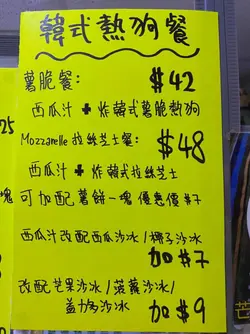 韓式熱狗餐
薯脆餐: $42
西瓜汁 + 炸韓式薯脆熱狗
Mozzarelle 拉絲芝士餐: $48
西瓜汁 + 炸韓式拉絲芝士
可加配薯餅一塊 優惠價 $7
西瓜汁改配西瓜沙冰/椰子沙冰
加 $7
改配芒果沙冰/菠蘿沙冰/
益力多沙冰 加 $9
25
塊